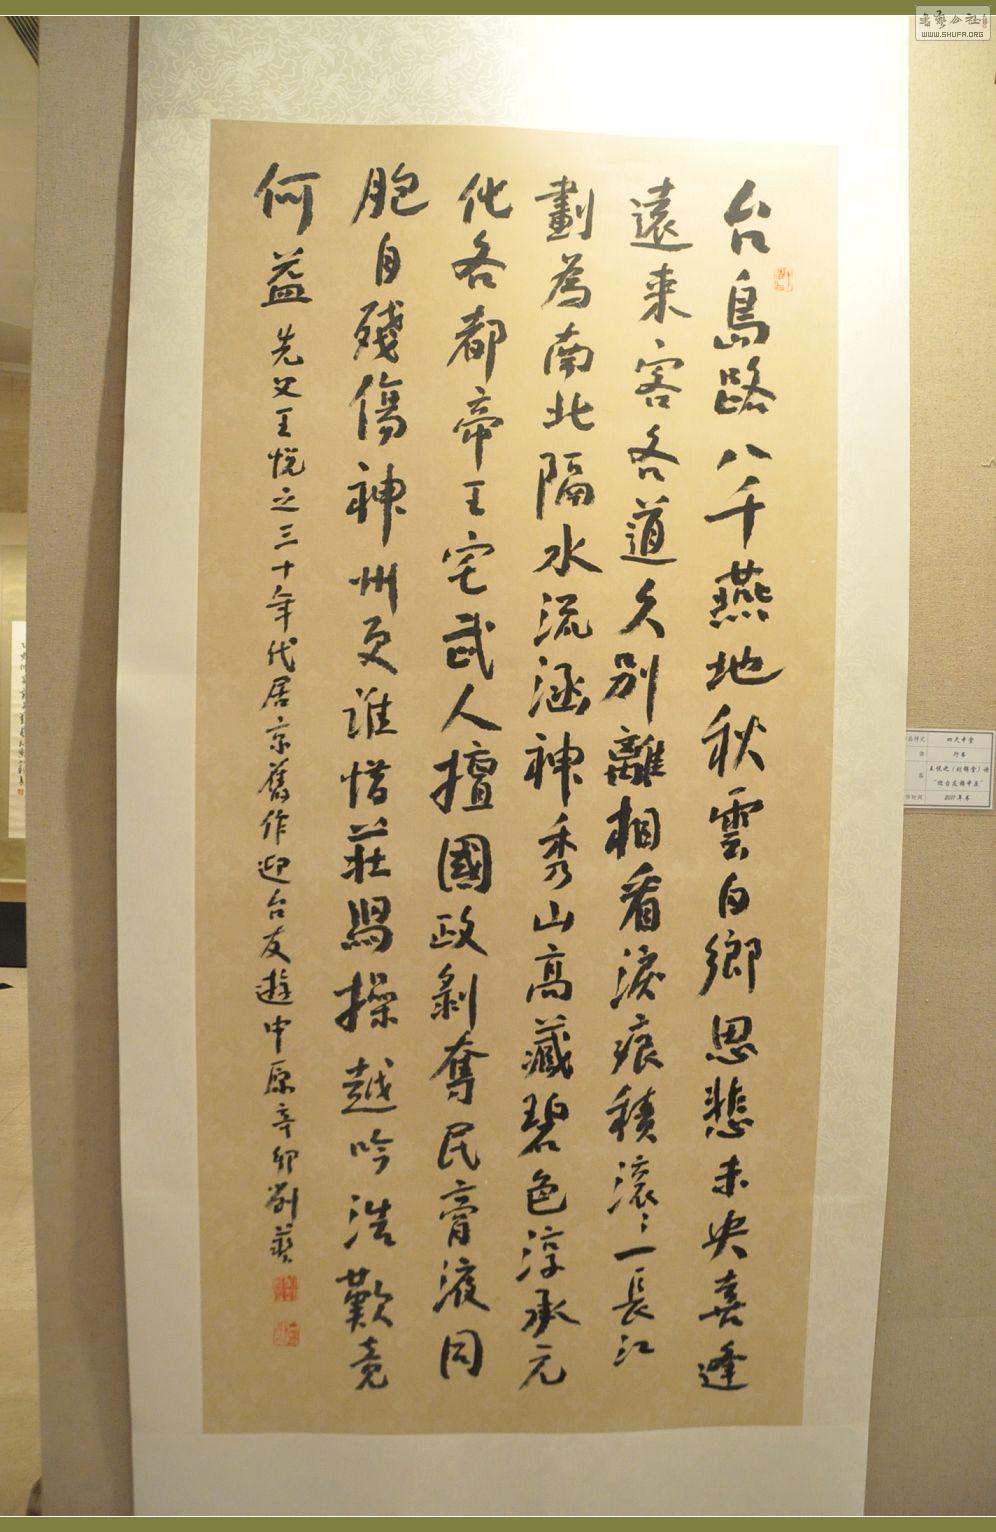 台島路八千燕地秋雲白鄉思悲未央喜逢
遠来客各道久別離相看淚痕積滾〻一長江
劃為南北隔水流涵神秀山高藏碧色淳承元
化各都帝王宅武人擅國政剝奪民膏液同
胞自殘傷神州更誰惜莊舄操越吟浩歎竟
何益
先父王悦之三十年代居京舊作迎台友遊中原辛卯劉藝
四尺中堂
行书
王悦之（刘锦堂）诗
“迎台友游中原”
2011年书
WWW.SHUFA.ORG